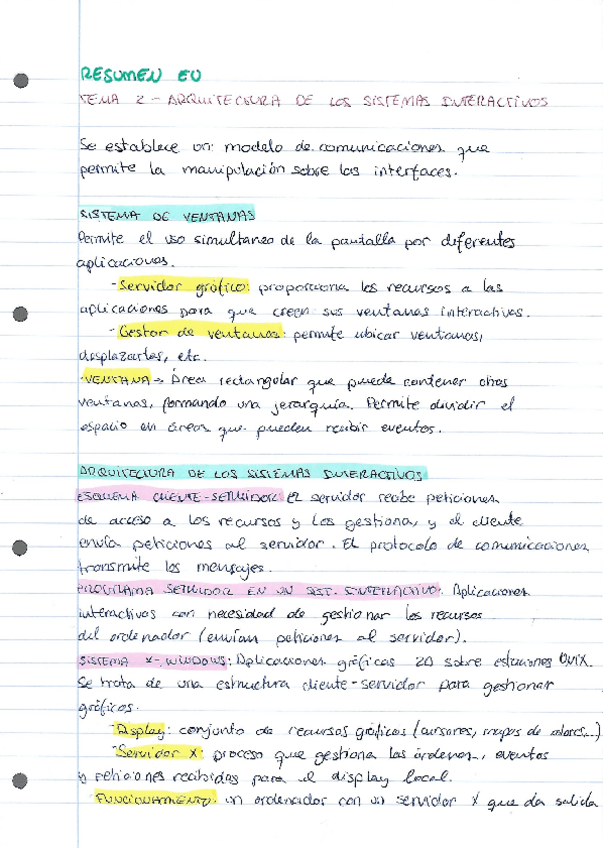 RESUMEN EU
TEMA 2 - ARQUITECTURA DE LOS SISTEMAS INTERACTIVOS
Se establece un modelo de comunicaciones que
permite la manipulación sobre las interfaces.
SISTEMA DE VENTANAS
Permite el uso simultaneo de la pantalla por diferentes
aplicaciones.
- Servidor gráfico: proporciona los recursos a las
aplicaciones para que creen sus ventanas interactivas.
- Gestor de ventanas: permite ubicar ventanas,
desplazarlas, etc.
· VENTANA → Área rectangular que puede contener otras
ventanas, formando una jerarquía. Permite dividir el
espacio en áreas que pueden recibir eventos.
ARQUITECTURA DE LOS SISTEMAS INTERACTIVOS
ESQUEMA CLIENTE-SERVIDOR: El servidor recibe peticiones
de acceso a los recursos y los gestiona, y el cliente
envía peticiones al servidor. El protocolo de comunicaciones
transmite los mensajes.
PROGRAMA SERVIDOR EN UN SIST. INTERACTIVO: Aplicaciones
interactivas con necesidad de gestionar los recursos
del ordenador (envían peticiones al servidor).
SISTEMA X-WINDOWS: Aplicaciones gráficas 2D sobre estaciones UNIX.
Se trata de una estructura cliente-servidor para gestionar
gráficos.
- Display: conjunto de recursos gráficos (cursores, mapas de colores...)
- Servidor X: proceso que gestiona las órdenes, eventos
y peticiones recibidas para el display local.
FUNCIONAMIENTO: un ordenador con un servidor X que da salida